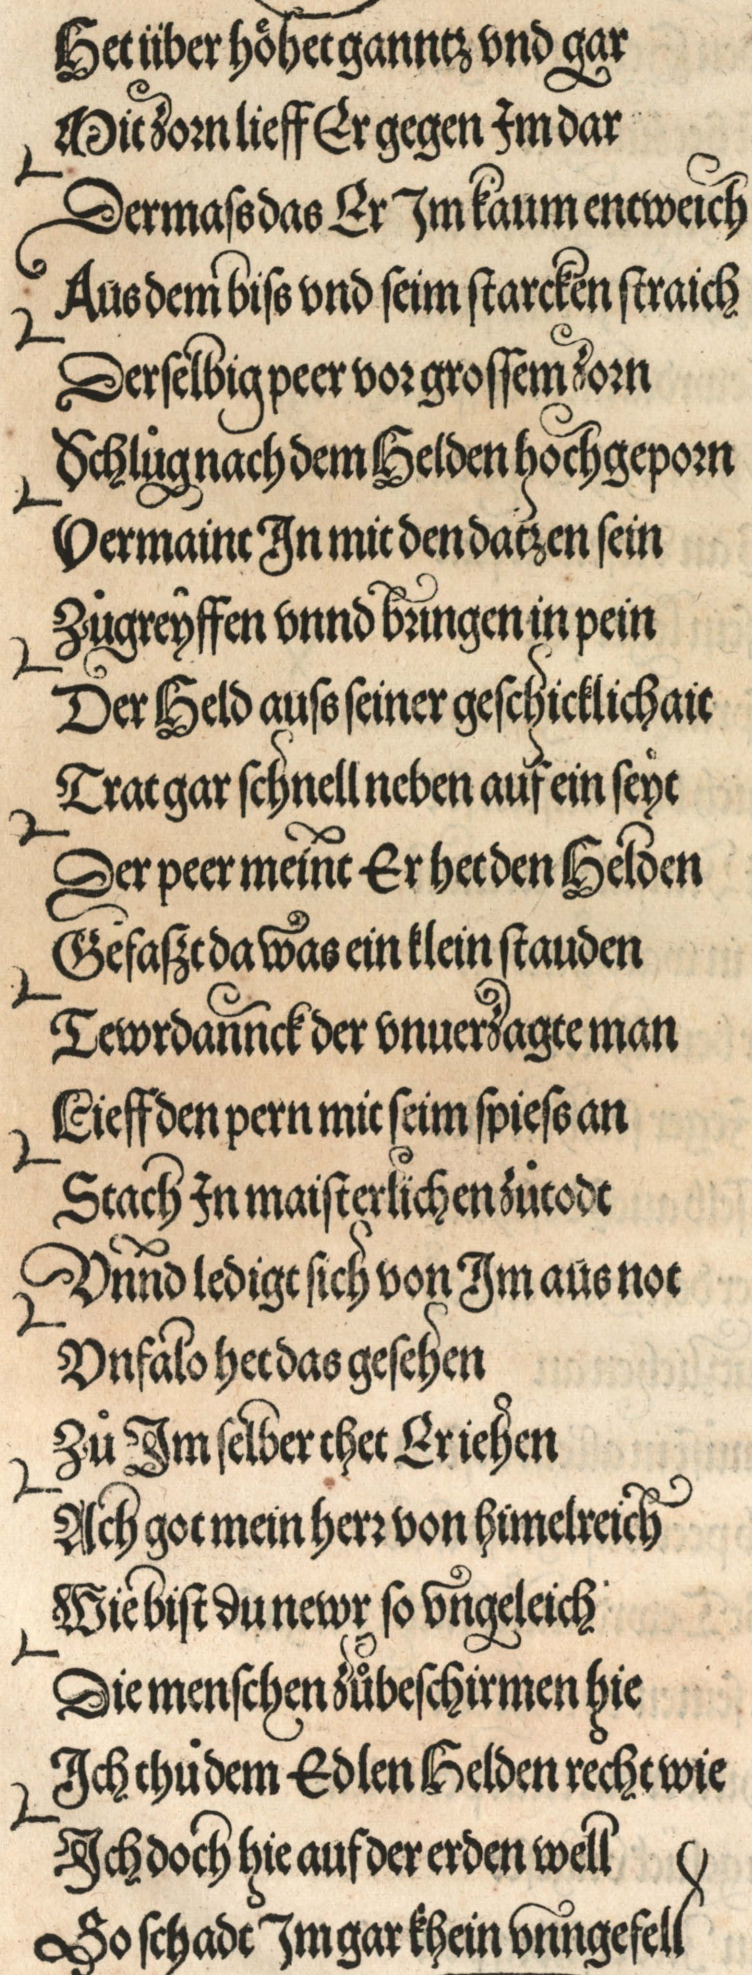 Het über höhet ganntz vnd gar
Mit zorn lieff Er gegen Im dar
Dermaſs das Er Im kaum entweich
Aus dem biſs vnd ſeim ſtarcken ſtraich
Derſelbig peer vor groſſem zorn
Schlůg nach dem Helden hochgeporn
Vermaint In mit den datzen ſein
Zůgreyffen vnnd bringen in pein
Der Held auſs ſeiner geſchicklichait
Trat gar ſchnell neben auf ein ſeyt
Der peer meint Er het den Helden
Gefaſzt da was ein klein ſtauden
Tewrdannck der vnuerzagte man
Lieff den pern mit ſeim ſpieſs an
Stach In maiſterlichen zůtodt
Vnnd ledigt ſich von Im aus not
Vnfalo het das geſehen
Zů Im ſelber thet Er iehen
Ach got mein herr von himelreich
Wie biſt du newr ſo vngeleich
Die menſchen zůbeſchirmen hie
Ich thů dem Edlen Helden recht wie
Ich doch hie auf der erden well
So ſchadt Im gar khein vnngefell